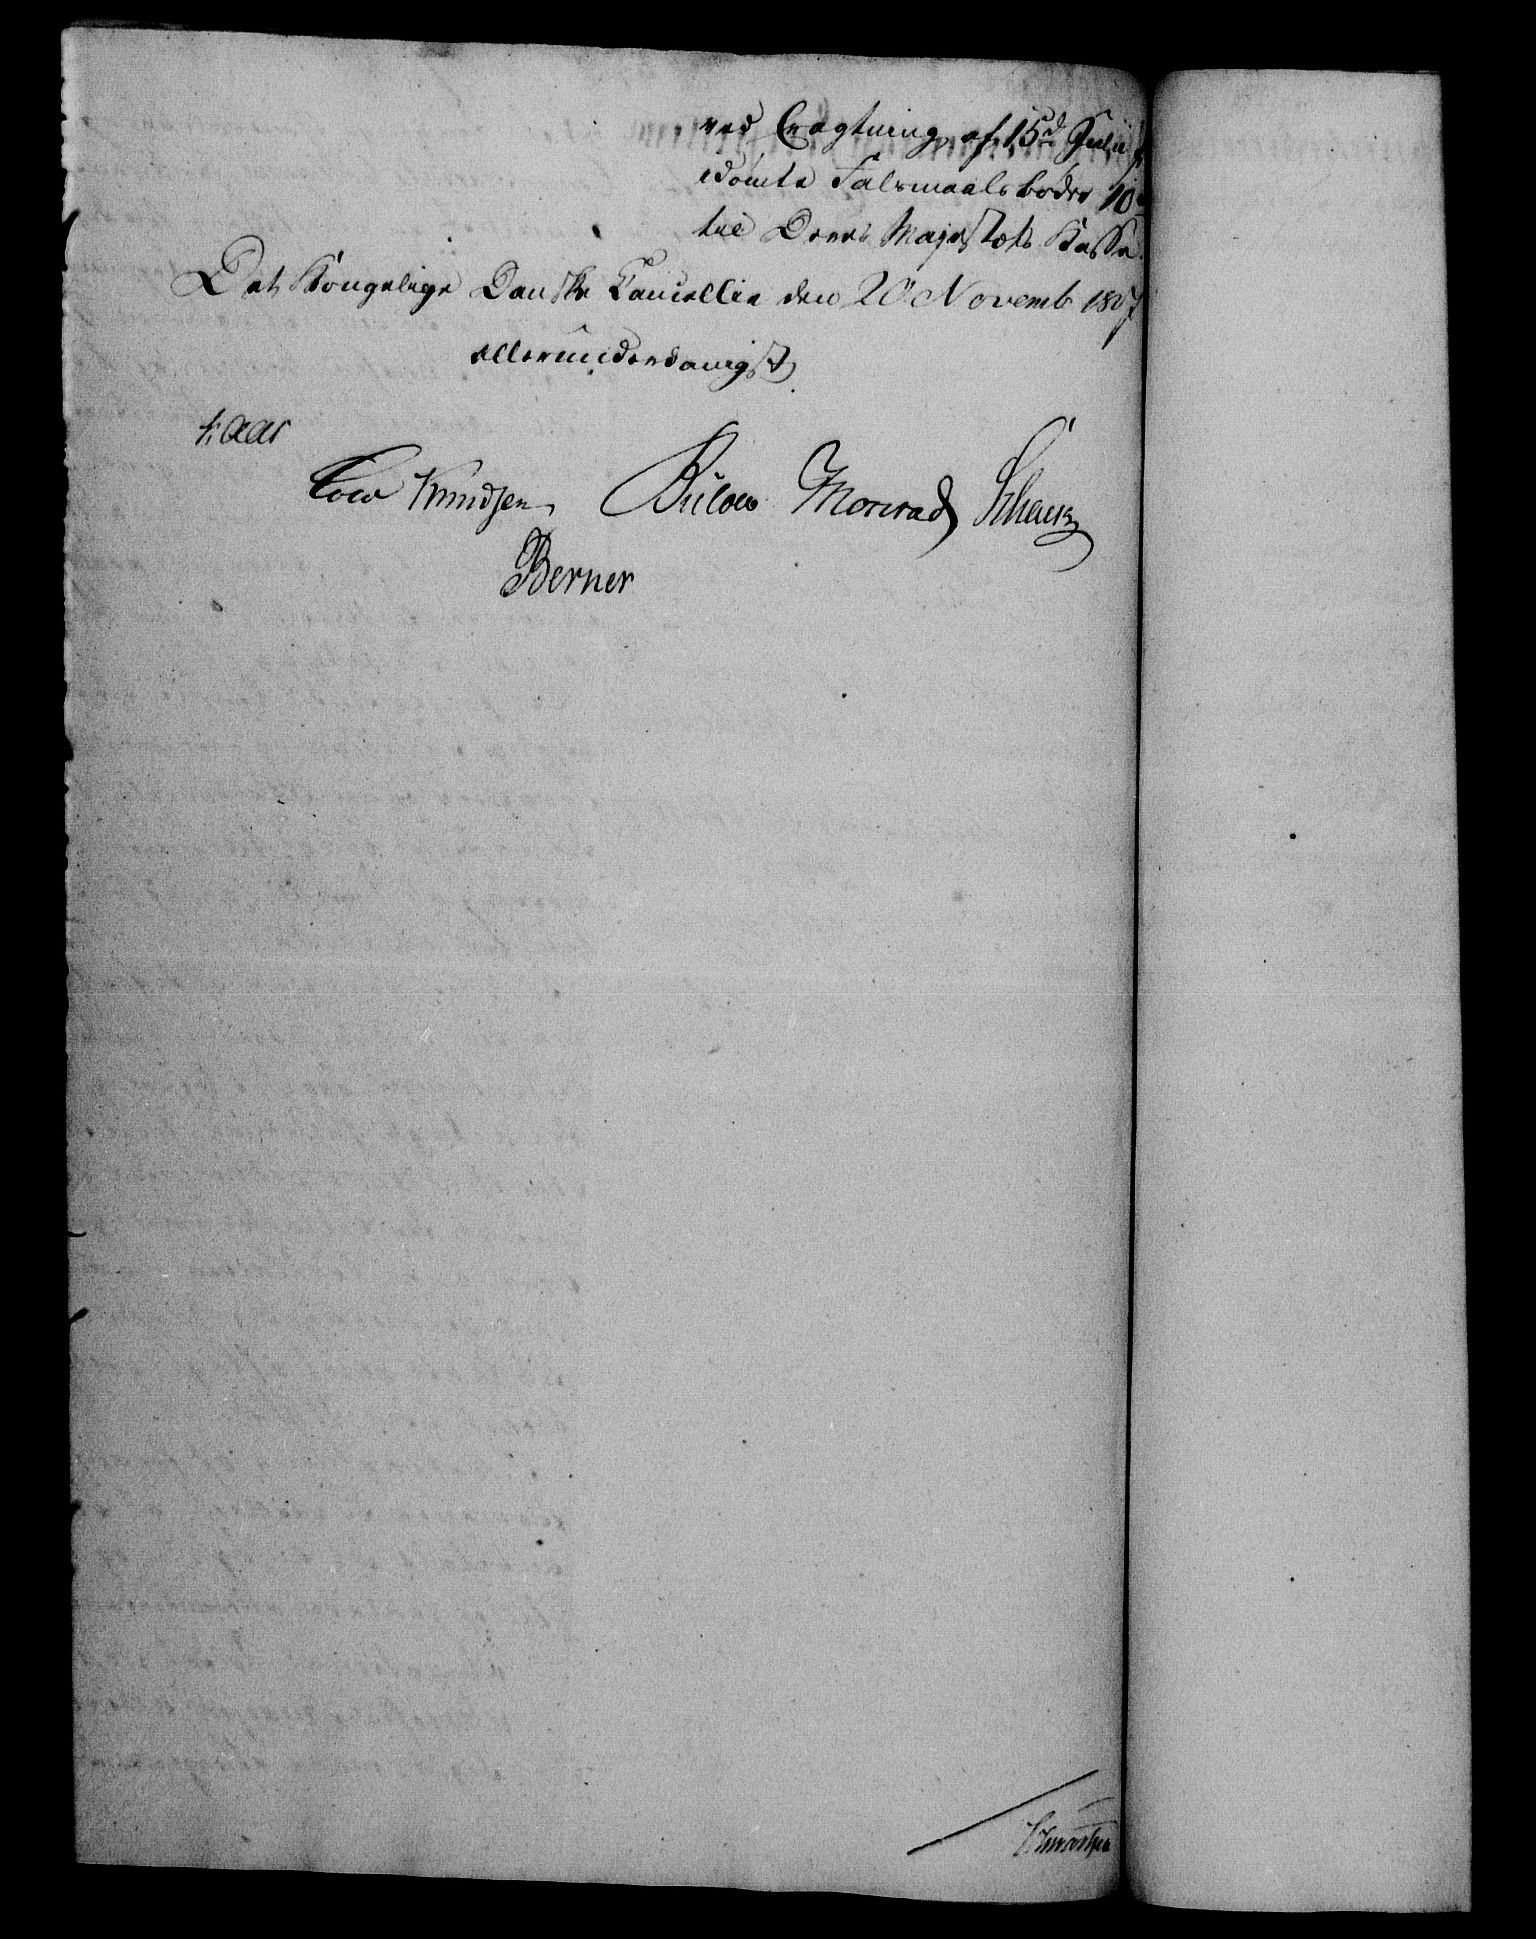 ved Eragtning af 15d Julii
idömte Falsmaalsbøder 10
til Deres Majestæts Kasse.
Det Kongelige Danske Cancellie den 20 Novemb 1807
allerunderdanigst
Kaas
Cold Knudsen Bülow Monrad Schønn
Berner